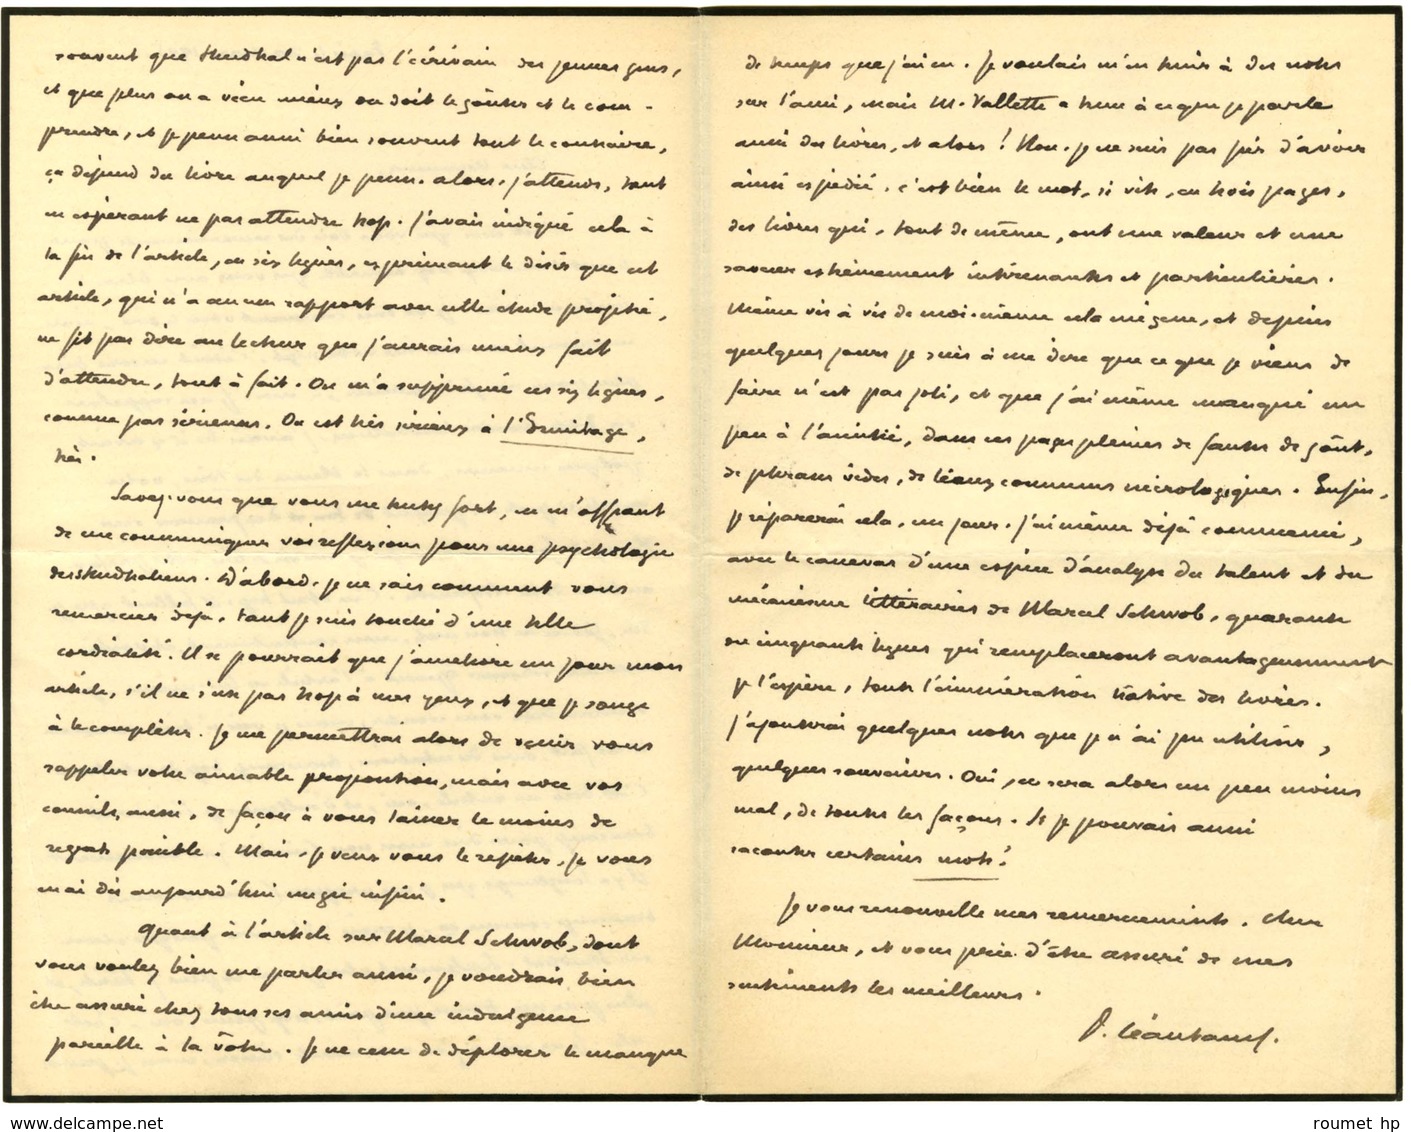 souvent que Stendhal n'est pas l'écrivain des jeunes gens,
et que plus on a vécu mieux on doit le goûter et le com-
prendre, et je pense aussi bien souvent tout le contraire,
ça dépend du livre auquel je pense. alors, j'attends, tout
en espérant ne pas attendre trop. J'avais indiqué cela à
la fin de l'article, en six lignes, exprimant le désir que cet
article, qui n'a aucun rapport avec cette étude projetée,
ne fît pas dire au lecteur que j'aurais mieux fait
d'attendre, tout à fait. On m'a supprimé ces six lignes,
comme pas sérieuses. On est très sérieux à l'Ermitage,
très.
Savez-vous que vous me tentez fort, en m'offrant
de me communiquer vos réflexions pour une psychologie
des stendhaliens. D'abord, je ne sais comment vous
remercier déjà, tant je suis touché d'une telle
cordialité. Il se pourrait que j'améliore un jour mon
article, s'il ne s'use pas trop à mes yeux, et que je songe
à le compléter. Je me permettrai alors de venir vous
rappeler votre aimable proposition, mais avec vos
conseils, aussi, de façon à vous laisser le moins de
regrets possible. Mais, je veux vous le répéter, je vous
en ai dès aujourd'hui un gré infini.
Quant à l'article sur Marcel Schwob, dont
vous voulez bien me parler aussi, je voudrais bien
être assuré chez tous ses amis d'une indulgence
pareille à la vôtre. Je ne cesse de déplorer le manque
de temps que j'ai eu. Je voulais m'en tenir à des notes
sur l'ami, mais M. Vallette a tenu à ce que je parle
aussi des livres, et alors! Non, je ne suis pas fier d'avoir
ainsi expédié, c'est bien le mot, si vite, en trois pages,
des livres qui, tout de même, ont une valeur et une
saveur extrêmement intéressantes et particulières.
Même vis à vis de moi-même cela me gêne, et depuis
quelques jours je suis à me dire que ce que je viens de
faire n'est pas joli, et que j'ai même manqué un
peu à l'amitié, dans ces pages pleines de fautes de goût,
de phrases vides, de lieux communs nécrologiques. Enfin,
je réparerai cela, un jour. J'ai même déjà commencé,
avec le canevas d'une espèce d'analyse du talent et du
mécanisme littéraires de Marcel Schwob, quarante
ou cinquante lignes qui remplaceront avantageusement
je l'espère, toute l'énumération hâtive des livres.
J'ajouterai quelques notes que je n'ai pu utiliser,
quelques souvenirs. Oui, ce sera alors un peu moins
mal, de toutes les façons. Si je pouvais aussi
raconter certains mots!
Je vous renouvelle mes remerciements, cher
Monsieur, et vous prie d'être assuré de mes
sentiments les meilleurs.
P. Léautaud.
www.delcampe.net
roumet hp